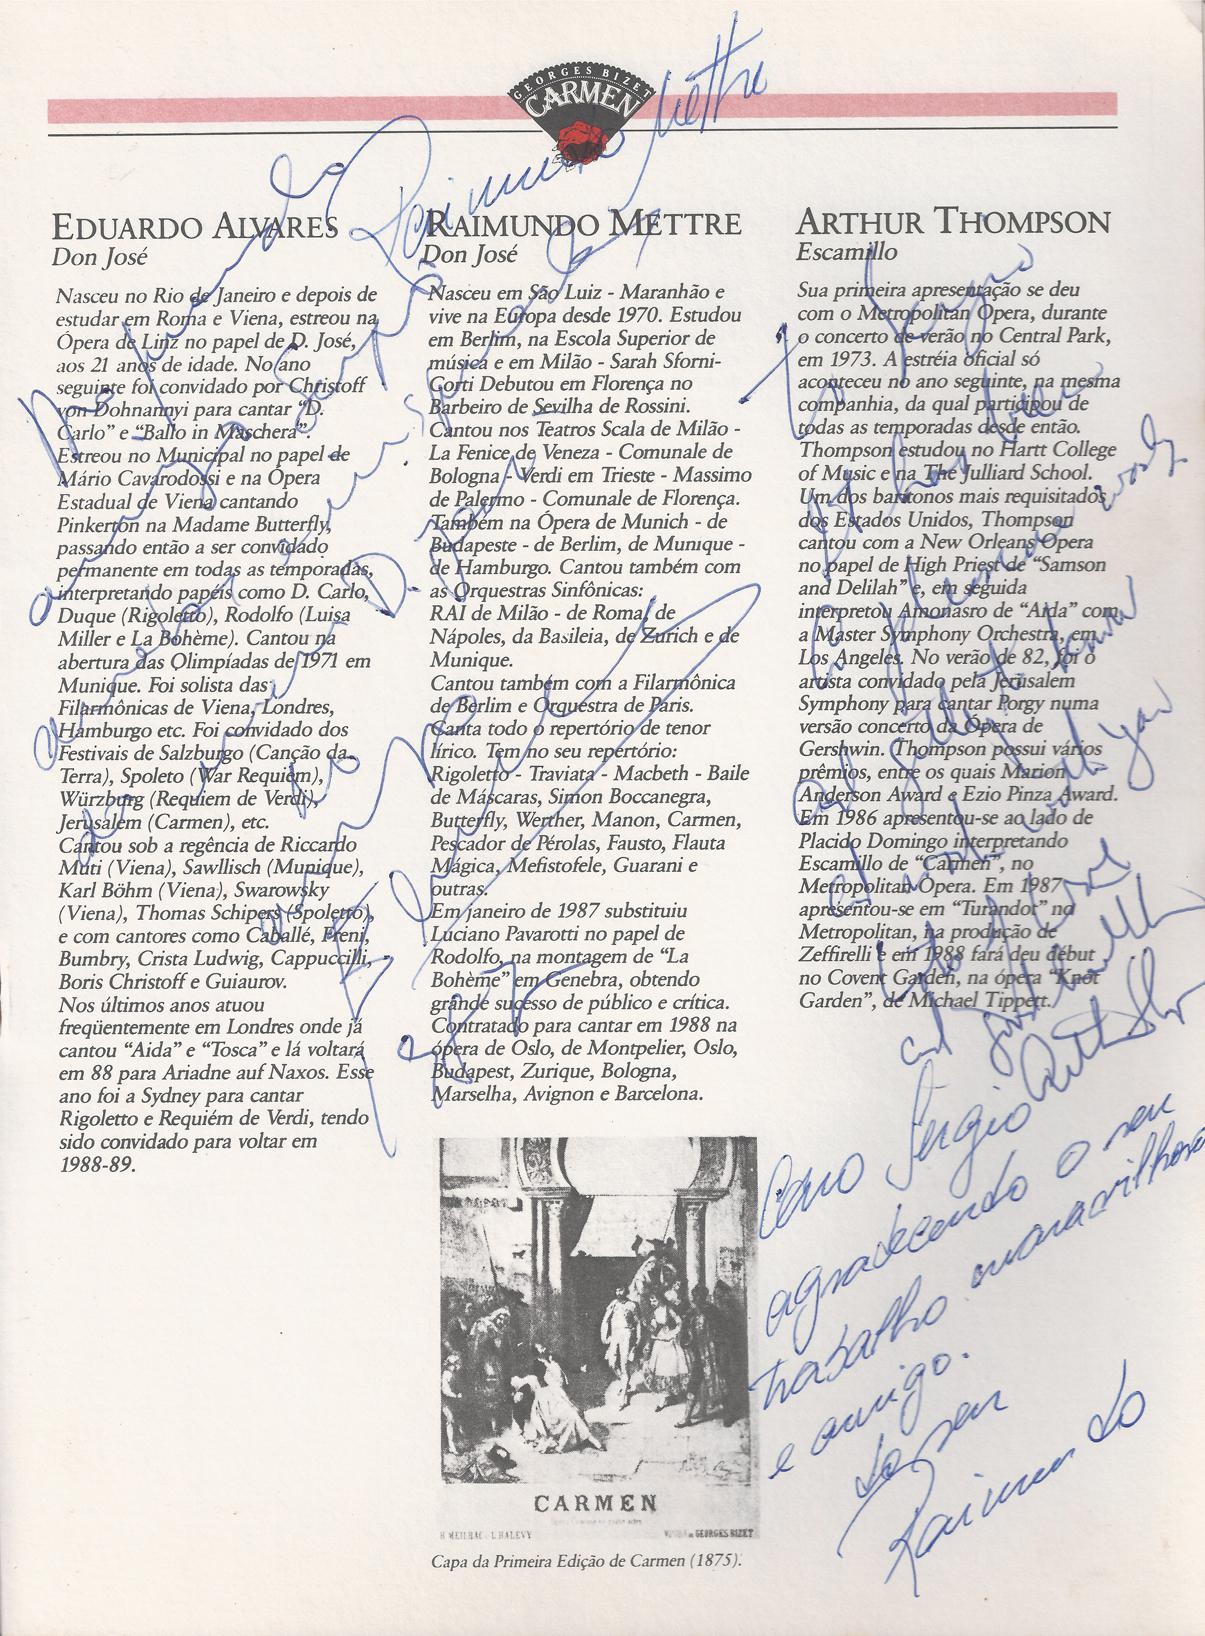 GEORGES BIZET
CARMEN
Raimundo Mettre
EDUARDO ALVARES
Don José
Nasceu no Rio de Janeiro e depois de
estudar em Roma e Viena, estreou na
Ópera de Linz no papel de D. José,
aos 21 anos de idade. No ano
seguinte foi convidado por Christoff
von Dohnannyi para cantar “D.
Carlo” e “Ballo in Maschera”.
Estreou no Municipal no papel de
Mário Cavarodossi e na Ópera
Estadual de Viena cantando
Pinkerton na Madame Butterfly,
passando então a ser convidado
permanente em todas as temporadas,
interpretando papéis como D. Carlo,
Duque (Rigoletto), Rodolfo (Luisa
Miller e La Bohème). Cantou na
abertura das Olimpíadas de 1971 em
Munique. Foi solista das
Filarmônicas de Viena, Londres,
Hamburgo etc. Foi convidado dos
Festivais de Salzburgo (Canção da
Terra), Spoleto (War Requiem),
Würzburg (Requiem de Verdi),
Jerusalem (Carmen), etc.
Cantou sob a regência de Riccardo
Muti (Viena), Sawllisch (Munique),
Karl Böhm (Viena), Swarowsky
(Viena), Thomas Schipers (Spoletto),
e com cantores como Caballé, Freni,
Bumbry, Crista Ludwig, Cappuccilli,
Boris Christoff e Guiaurov.
Nos últimos anos atuou
freqüentemente em Londres onde já
cantou “Aida” e “Tosca” e lá voltará
em 88 para Ariadne auf Naxos. Esse
ano foi a Sydney para cantar
Rigoletto e Requiém de Verdi, tendo
sido convidado para voltar em
1988-89.
RAIMUNDO METTRE
Don José
Nasceu em São Luiz - Maranhão e
vive na Europa desde 1970. Estudou
em Berlim, na Escola Superior de
música e em Milão - Sarah Sforni-
Corti Debutou em Florença no
Barbeiro de Sevilha de Rossini.
Cantou nos Teatros Scala de Milão -
La Fenice de Veneza - Comunale de
Bologna - Verdi em Trieste - Massimo
de Palermo - Comunale de Florença.
Também na Ópera de Munich - de
Budapeste - de Berlim, de Munique -
de Hamburgo. Cantou também com
as Orquestras Sinfônicas:
RAI de Milão - de Roma, de
Nápoles, da Basileia, de Zurich e de
Munique.
Cantou também com a Filarmônica
de Berlim e Orquestra de Paris.
Canta todo o repertório de tenor
lírico. Tem no seu repertório:
Rigoletto - Traviata - Macbeth - Baile
de Máscaras, Simon Boccanegra,
Butterfly, Werther, Manon, Carmen,
Pescador de Pérolas, Fausto, Flauta
Mágica, Mefistofele, Guarani e
outras.
Em janeiro de 1987 substituiu
Luciano Pavarotti no papel de
Rodolfo, na montagem de “La
Bohème” em Genebra, obtendo
grande sucesso de público e crítica.
Contratado para cantar em 1988 na
ópera de Oslo, de Montpelier, Oslo,
Budapest, Zurique, Bologna,
Marselha, Avignon e Barcelona.
CARMEN
H. MEILHAC - L. HALEVY
GEORGES BIZET
Capa da Primeira Edição de Carmen (1875).
ARTHUR THOMPSON
Escamillo
Sua primeira apresentação se deu
com o Metropolitan Opera, durante
o concerto de verão no Central Park,
em 1973. A estréia oficial só
aconteceu no ano seguinte, na mesma
companhia, da qual participou de
todas as temporadas desde então.
Thompson estudou no Hartt College
of Music e na The Julliard School.
Um dos barítonos mais requisitados
dos Estados Unidos, Thompson
cantou com a New Orleans Opera
no papel de High Priest de “Samson
and Delilah” e, em seguida
interpretou Amonasro de “Aida” com
a Master Symphony Orchestra, em
Los Angeles. No verão de 82, foi o
artista convidado pela Jerusalem
Symphony para cantar Porgy numa
versão concerto da Ópera de
Gershwin. Thompson possui vários
prêmios, entre os quais Marion
Anderson Award e Ezio Pinza Award.
Em 1986 apresentou-se ao lado de
Placido Domingo interpretando
Escamillo de “Carmen”, no
Metropolitan Opera. Em 1987
apresentou-se em “Turandot” no
Metropolitan, na produção de
Zeffirelli e em 1988 fará deu début
no Covent Garden, na ópera “Knot
Garden”, de Michael Tippett.
to Sergio
It has been
a pleasure
Caro Sergio
agradecendo o seu
trabalho maravilhoso
e amigo.
do seu
Raimundo